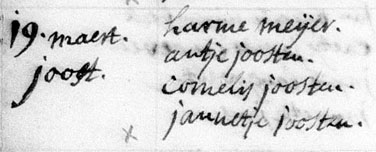 19. maert.
joost.
harme meijer.
antje joosten.
cornelis joosten.
jannetje joosten.